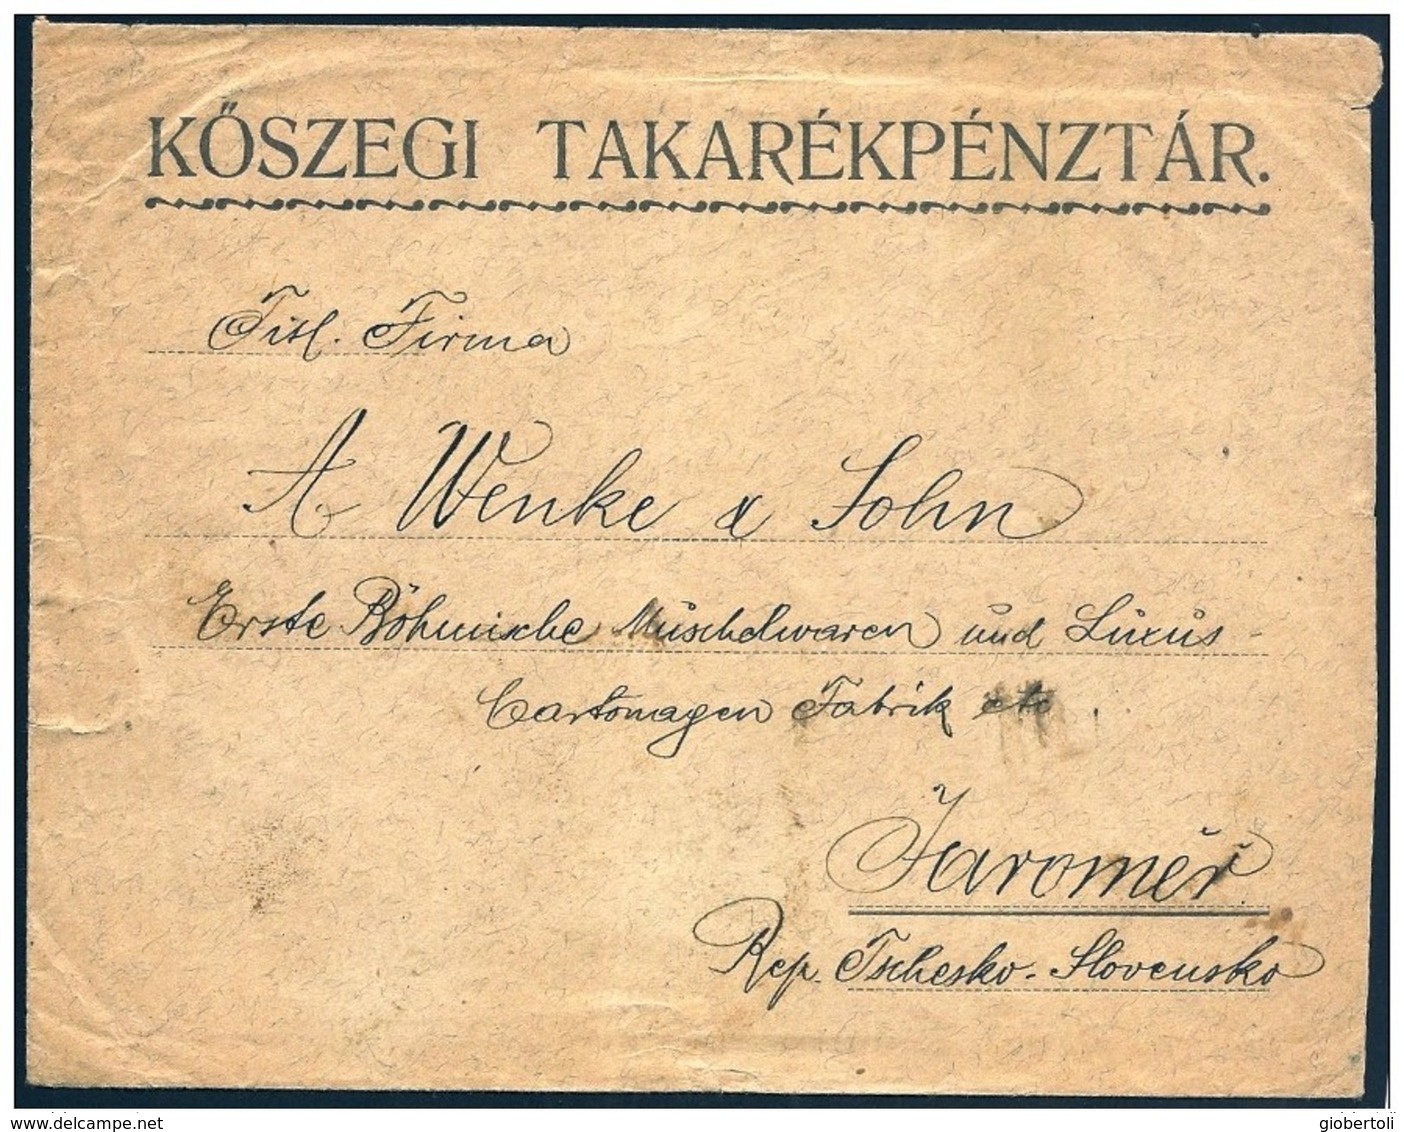 KŐSZEGI TAKARÉKPÉNZTÁR.
Titl. Firma
A Wenke & Sohn
Erste Böhmische Muschelwaren und Luxus-
Cartonagen Fabrik etc.
Jaroměř
Rep. Tschesko-Slovensko
www.delcampe.net
giobertoli